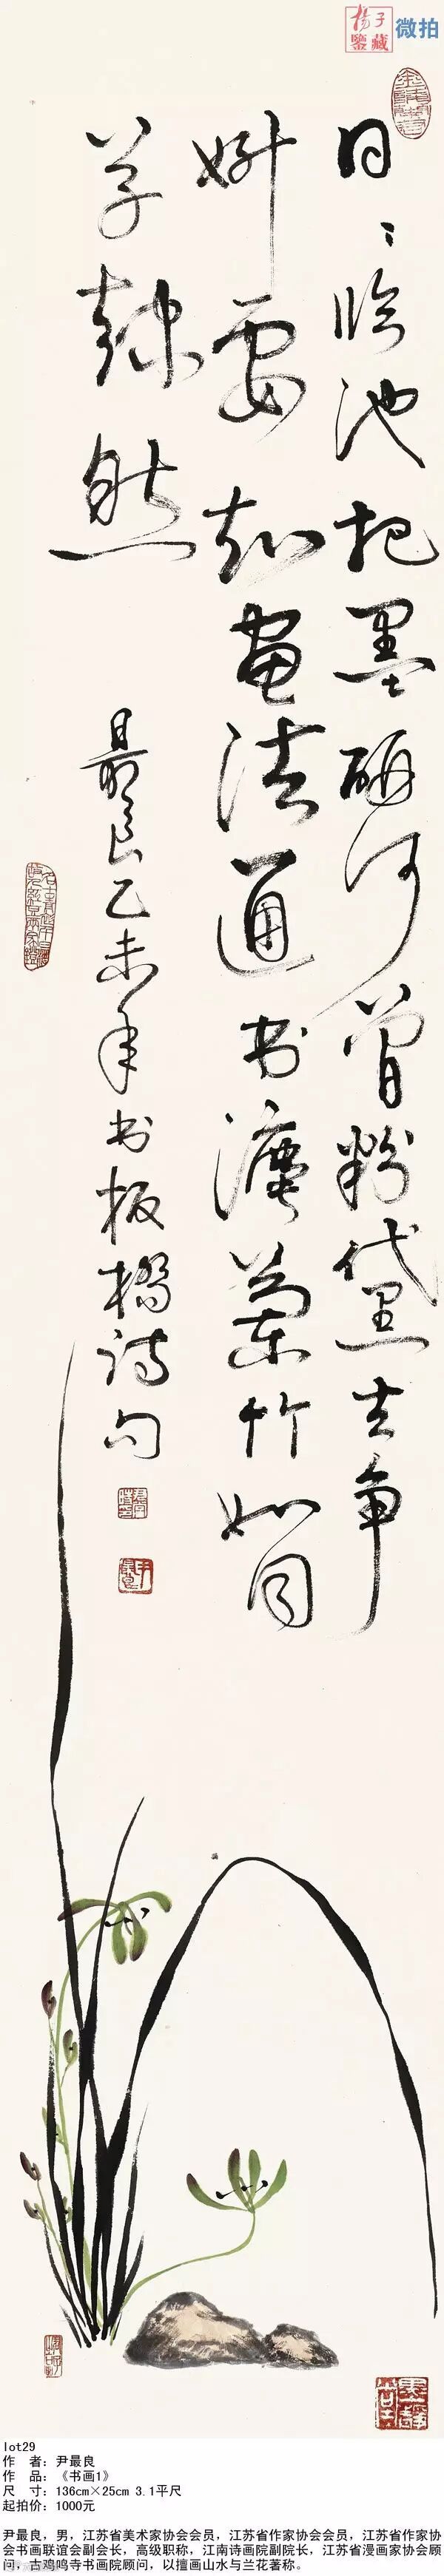 揚子
鑒藏
微拍
日〻临池把墨研何曾粉黛去争
妍要知画法通书法兰竹如同
草隶然
最良乙未年书板桥诗句
lot29
作 者：尹最良
作 品：《书画1》
尺 寸：136cm×25cm 3.1平尺
起拍价：1000元
尹最良，男，江苏省美术家协会会员，江苏省作家协会会员，江苏省作家协
会书画联谊会副会长，高级职称，江南诗画院副院长，江苏省漫画家协会顾
问，古鸡鸣寺书画院顾问，以擅画山水与兰花著称。